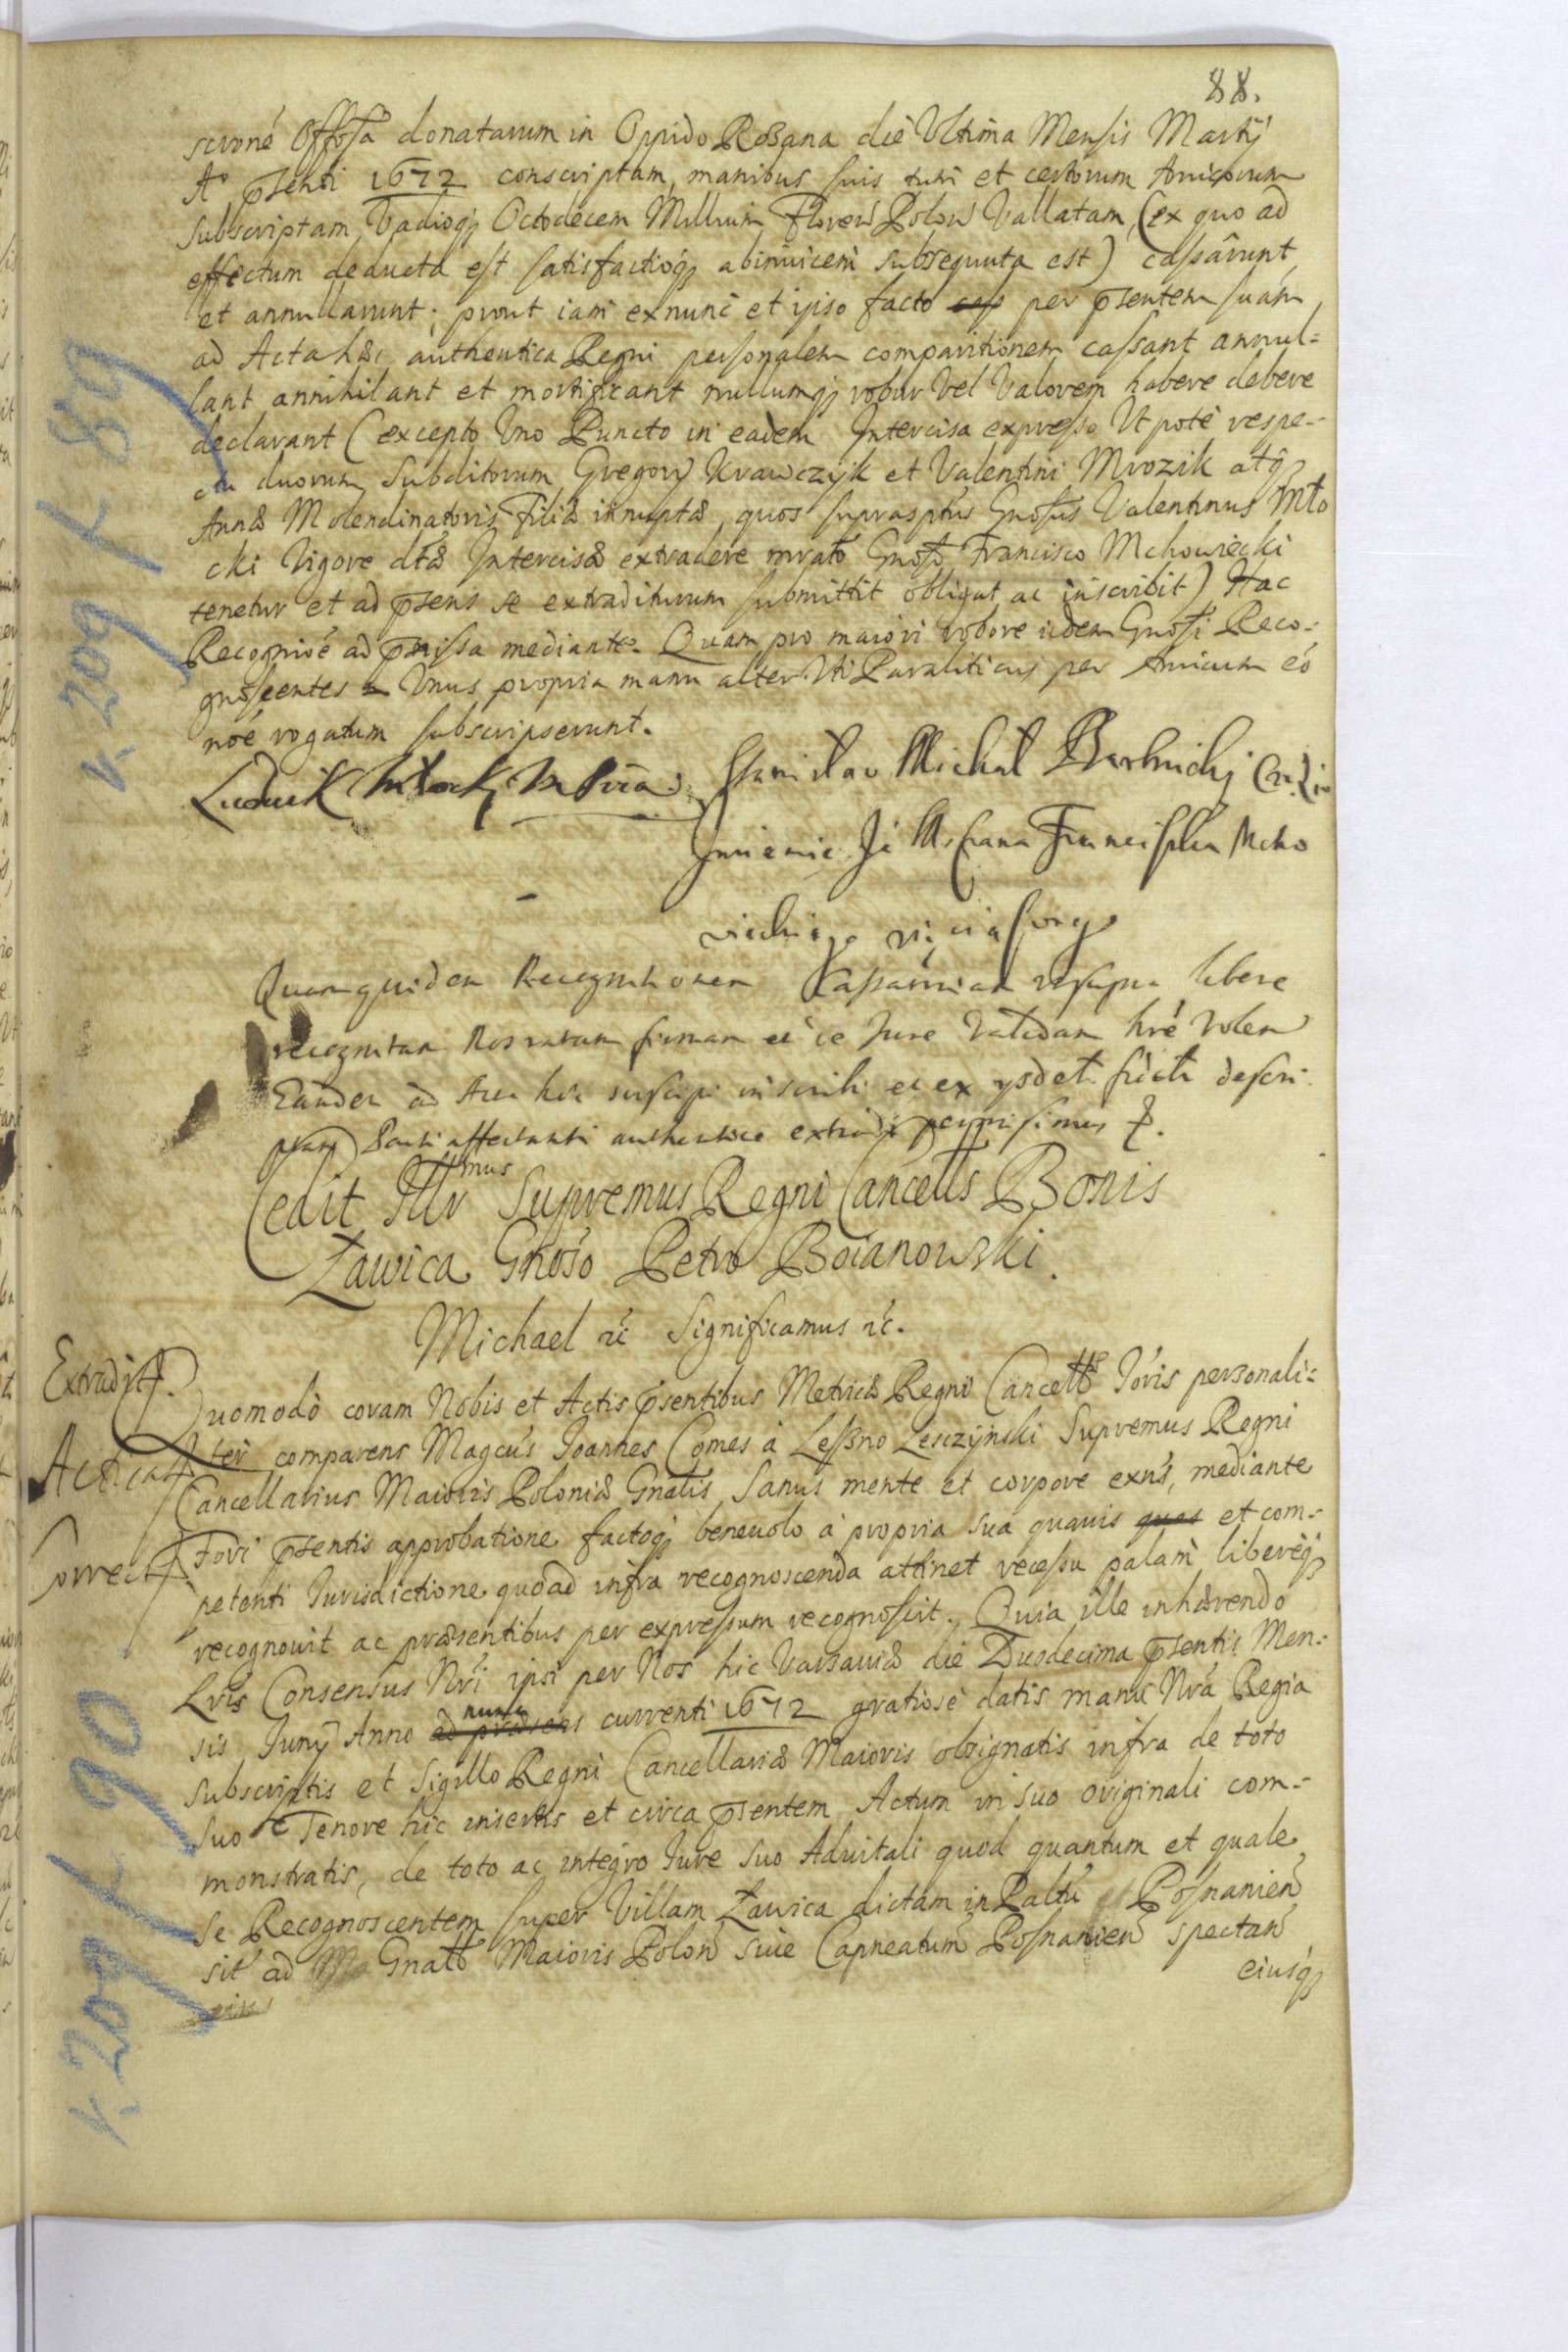 88.
scioné Offosa donatarum in Oppido Rożana die Ultima Mensis Martÿ
Aº pṡenti 1672 conscriptam, manibus suis tum et certorum Amicorum
Subscriptam, Vadioq; Octodecem Millium Floreń Poloń Vallatam, (ex quo ad
effectum deducta est satisfactioq; abinuicem subsequuta est) cassârunt
et annullarunt; prout iam exnunc et ipso facto per pṡentem suam
ad Acta hæc authentica Regni personalem comparitionem cassant annul-
lant annihilant et mortificant nullumq; robur vel Valorem habere debere
declarant (excepto Uno Puncto in eadem Intercisa expresso Ut potè respe-
ctu duorum Subditorum Gregorÿ Krawczÿk et Valentini Mrozik atq;
Annæ Molendinatoris Filiæ innuptæ, quos supraspt̃us Gnosus Valentinus Mło
cki Vigore dt̃æ Intercisæ extradere mrato Gnoso Francisco Mchowiecki
tenetur et ad pṡens se extraditurum submittit obligat ac inscribit) Hac
Recognioé ad pṁissa mediante. Quam pro maiori robore iidem Gnosi Reco-
gnoscentes Unus propria manu alter Uti Paraliticus per Amicum eó
noé rogatum subscripserunt.
Ludwik Młocki M Pria: Stanisław Michał
Imieniem Je Mści Pana Franciszka Mcho
wieckiego
Quamquidem Recognitionem Cassatoriam ut supra libere
recognitam Nos ratam firmam et de Jure Validam hré Volen
Eandem ad Acta hæc suscipi inscribi et ex ÿsdet descri
ptam Parti affectanti authentice extradi permisimus
Cedit Illrmus Supremus Regni Cancells Bonis
Ławica Gnoso Petro Boianowski.
Michael ꝛc Significamus ꝛc.
Extradit.
Quomodò coram Nobis et Actis pṡentibus Metricæ Regni Cancellæ Ioris personali-
ter comparens Magcus Joannes Comes à Leszno Lesczÿnski Supremus Regni
Acticat
Cancellarius Maioris Poloniæ Gnalis Sanus mente et corpore exns, mediante
Correct
Fori pṡentis approbatione factoq; beneuolo à propria sua quauis quas et com-
petenti Jurisdictione quoad infra recognoscenda attinet recessu palam liberèq;
recognouit ac præsentibus per expressum recognoscit. Quia ille inhærendo
Lris Consensus Nri ipsi per Nos hic Varsauiæ die Duodecima pṡentis Men-
sis Junÿ Anno ad præsens nunc currenti 1672 gratiosè datis manu Nrá Regia
Subscriptis et Sigillo Regni Cancellariæ Maioris obsignatis infra de toto
suo Tenore hic insertis et circa pṡentem Actum in suo originali com-
monstratis, de toto ac integro Jure suo Aduitali quod quantum et quale
se Recognoscentem super Villam Ławica dictam in Paltu Posnanień
sit ad Gnattæ Maioris Poloń siuè Capneatum Posnanień spectań
eiusq;
k. 209 f 89
k. 209 f 90